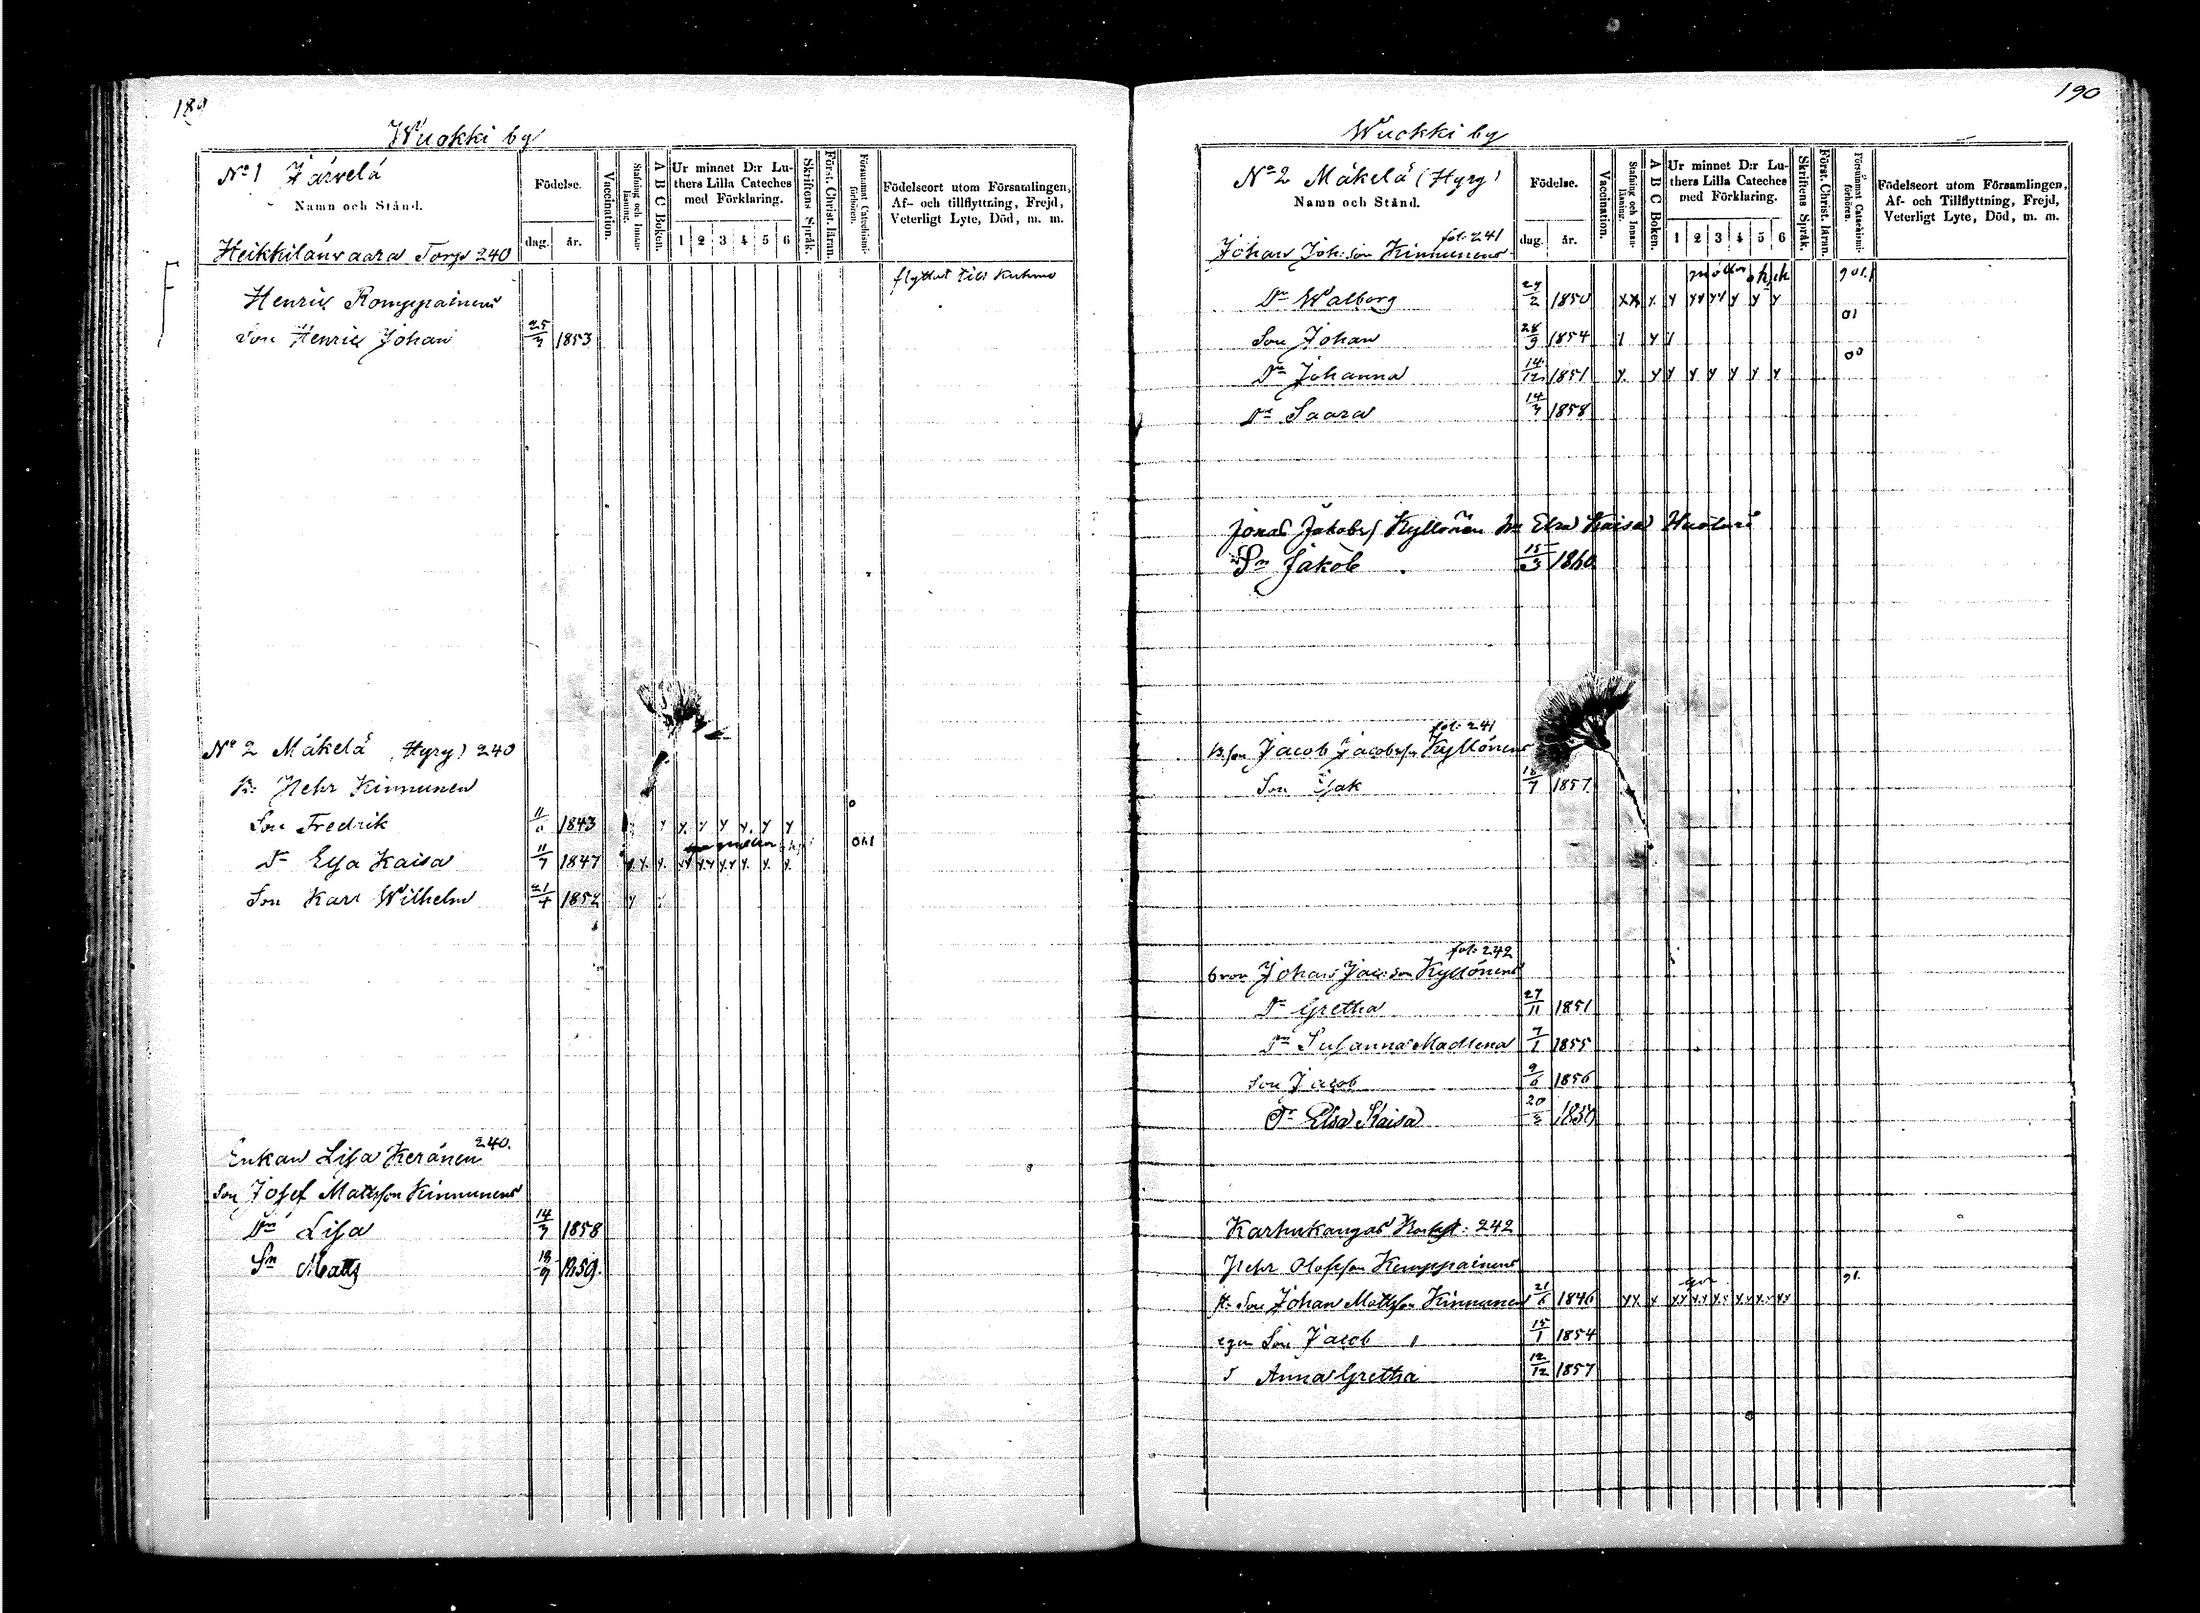 189
Wuokki by
No 1 Järvelä
Namn och Stånd.
Födelse.
dag. år.
Vaccination.
Stafning och Innanläsning.
A B C Boken.
Ur minnet D:r Luthers Lilla Cateches med Förklaring.
1 2 3 4 5 6
Skriftens Språk.
Först. Christ. läran.
Försummat Catechismi-förhören.
Födelseort utom Församlingen, Af- och tillflyttning, Frejd, Veterligt Lyte, Död, m. m.
Heikkilänvaara Torp 240
flyttat till Kuhmo
Henric Romppainens
Son Henric Johan 25/3 1853
No 2 Mäkelä (Hyry) 240
Son Fredrik 1843
Dr Eva Kaisa 11/7 1847
Son Karl Wilhelm 21/4 1852
Enkan Lisa Keränen 240.
Son Josef Mattsson Kinnunens
Dr Lisa 14/3 1858
Sn Matts 18/9 1859.
190
Wuokki by
No 2 Mäkelä (Hyry)
Namn och Stånd.
Födelse.
dag. år.
Vaccination.
Stafning och Innanläsning.
A B C Boken.
Ur minnet D:r Luthers Lilla Cateches med Förklaring.
1 2 3 4 5 6
Skriftens Språk.
Först. Christ. läran.
Försummat Catechismi-förhören.
Födelseort utom Församlingen, Af- och Tillflyttning, Frejd, Veterligt Lyte, Död, m. m.
fol: 241
Johan Joh:son Kinnunens
Dr Walborg 24/2 1850
Son Johan 28/9 1854
Dr Johanna 14/12 1851
Dr Saara 14/3 1858
Jonas Jakobs Kyllönen Elsa Kaisa
Sn Jakob 15/3 1860
fol: 241
Jacob Jacobsson Kyllönens
Son Isak 18/7 1857
fol: 242
bror Johan Jac:son Kyllönens
Dr Gretha 27/11 1851
Dr Susanna Madlena 7/1 1855
Son Jacob 9/6 1856
Dr Elsa Kaisa 20/3 1859
Karhukangas 242
Olofsson Kemppainens
Son Johan Mattsson Kinnunen 21/6 1846
egen Son Jacob 15/1 1854
Anna Gretha 12/12 1857